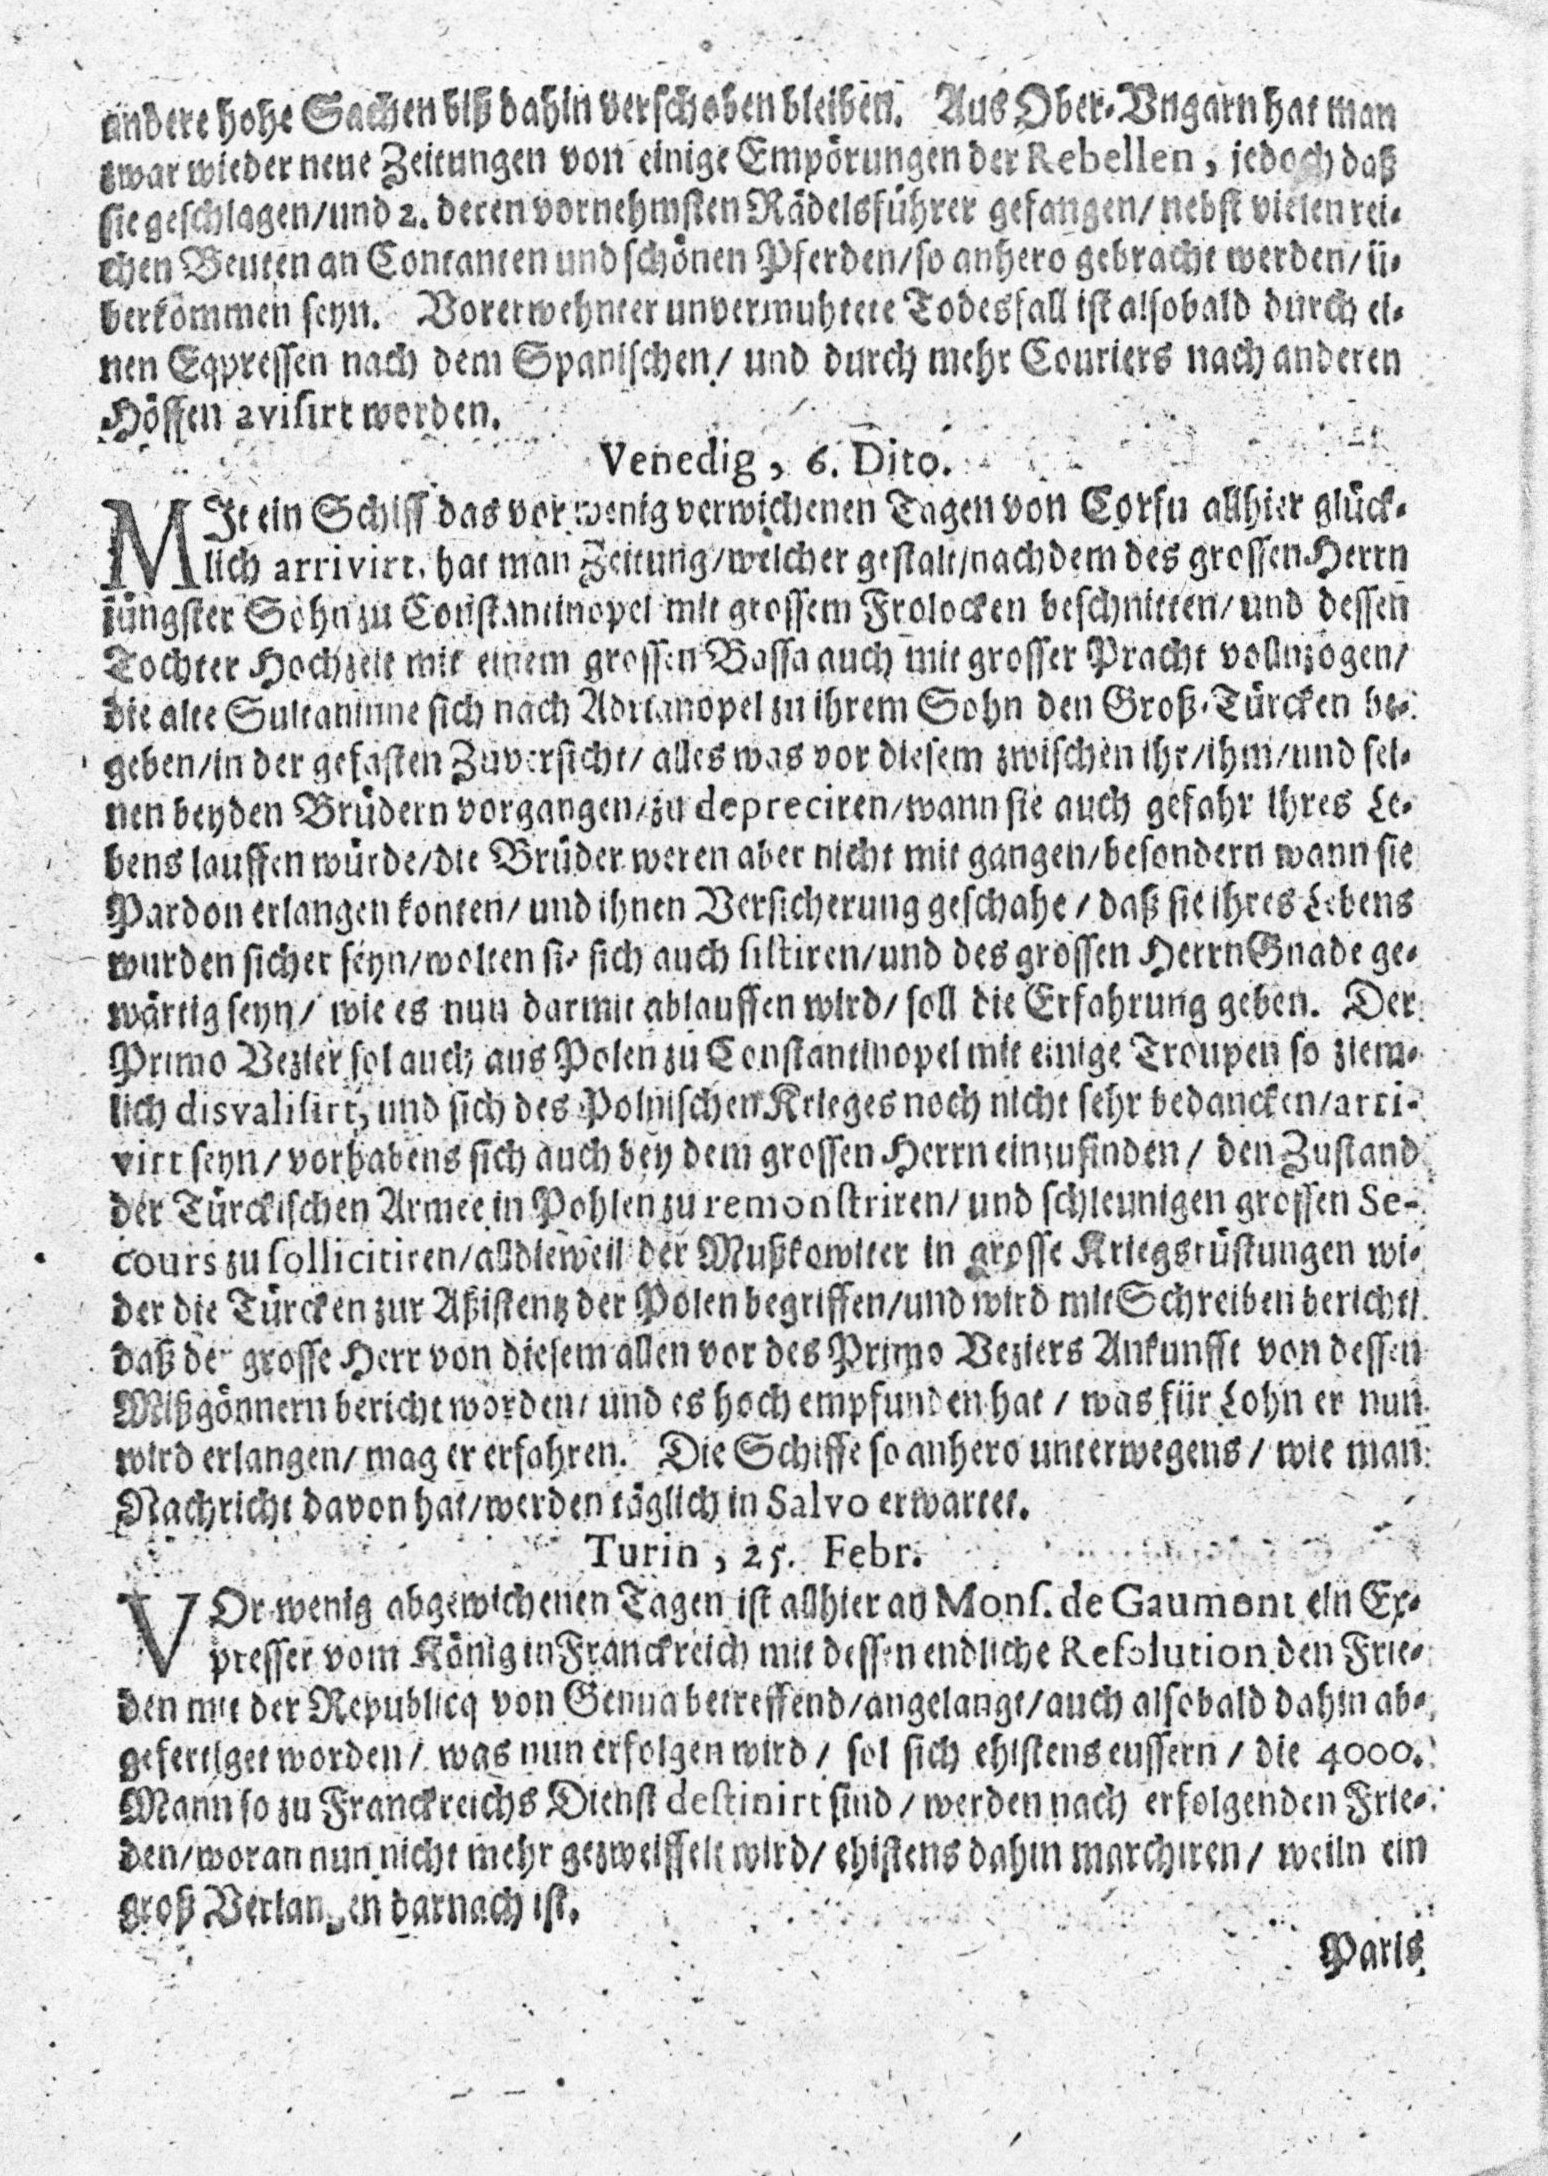 andere hohe Sachen biß dahin verschoben bleiben. Aus Ober-Vngarn hat man
zwar wieder neue Zeitungen von einige Empörungen der Rebellen, jedoch daß
sie geschlagen/und 2. deren vornehmsten Rädelsführer gefangen/ nebst vielen rei-
chen Beuten an Contanten und schönen Pferden/so anhero gebracht werden/ ü-
berkommen seyn. Vorerwehnter unvermuhtete Todesfall ist alsobald durch ei-
nen Eqpressen nach dem Spanischen/ und durch mehr Couriers nach anderen
Höffen avisirt worden.
Venedig, 6. Dito.
MIt ein Schiff das vor wenig verwichenen Tagen von Corfu allhier glück-
lich arrivirt, hat man Zeitung/welcher gestalt/nachdem des grossen Herrn
jüngster Sohn zu Constantinopel mit grossem Frolocken beschnitten/ und dessen
Tochter Hochzeit mit einem grossen Bassa auch mit grosser Pracht vollnzogen/
die alte Sultaninne sich nach Adrianopel zu ihrem Sohn den Groß-Türcken be-
geben/in der gefasten Zuversicht/ alles was vor diesem zwischen ihr/ihm/und sei-
nen beyden Brüdern vorgangen/zu depreciren/wann sie auch gefahr ihres Le-
bens lauffen würde/die Brüder weren aber nicht mit gangen/besondern wann sie
Pardon erlangen konten/ und ihnen Versicherung geschahe/ daß sie ihres Lebens
wurden sicher seyn/wolten sie sich auch sistiren/und des grossen Herrn Gnade ge-
wärtig seyn/ wie es nun darmit ablauffen wird/ soll die Erfahrung geben. Der
Primo Vezier sol auch aus Polen zu Constantinopel mit einige Troupen so ziem-
lich disvalisirt, und sich des Polnischen Krieges noch nicht sehr bedancken/arri-
virt seyn/ vorhabens sich auch bey dem grossen Herrn einzufinden/ den Zustand
der Türckischen Armee in Pohlen zu remonstriren/ und schleunigen grossen Se-
cours zu sollicitiren/alldieweil der Mußkowiter in grosse Kriegsrüstungen wi-
der die Türcken zur Aßistentz der Polen begriffen/und wird mit Schreiben bericht/
daß der grosse Herr von diesem allen vor des Primo Veziers Ankunfft von dessen
Mißgönnern bericht worden/ und es hoch empfunden hat/ was für Lohn er nun
wird erlangen/ mag er erfahren. Die Schiffe so anhero unterwegens/ wie man
Nachricht davon hat/werden täglich in Salvo erwartet.
Turin, 25. Febr.
VOr wenig abgewichenen Tagen ist allhier an Mons. de Gaumont ein Ex-
presser vom König in Franckreich mit dessen endliche Resolution den Frie-
den mit der Republicq von Genua betreffend/angelangt/auch alsobald dahin ab-
gefertiget worden/ was nun erfolgen wird/ sol sich ehistens eussern/ die 4000.
Mann so zu Franckreichs Dienst destinirt sind/ werden nach erfolgenden Frie-
den/woran nun nicht mehr gezweiffelt wird/ ehistens dahin marchiren/ weiln ein
groß Verlangen darnach ist.
Paris